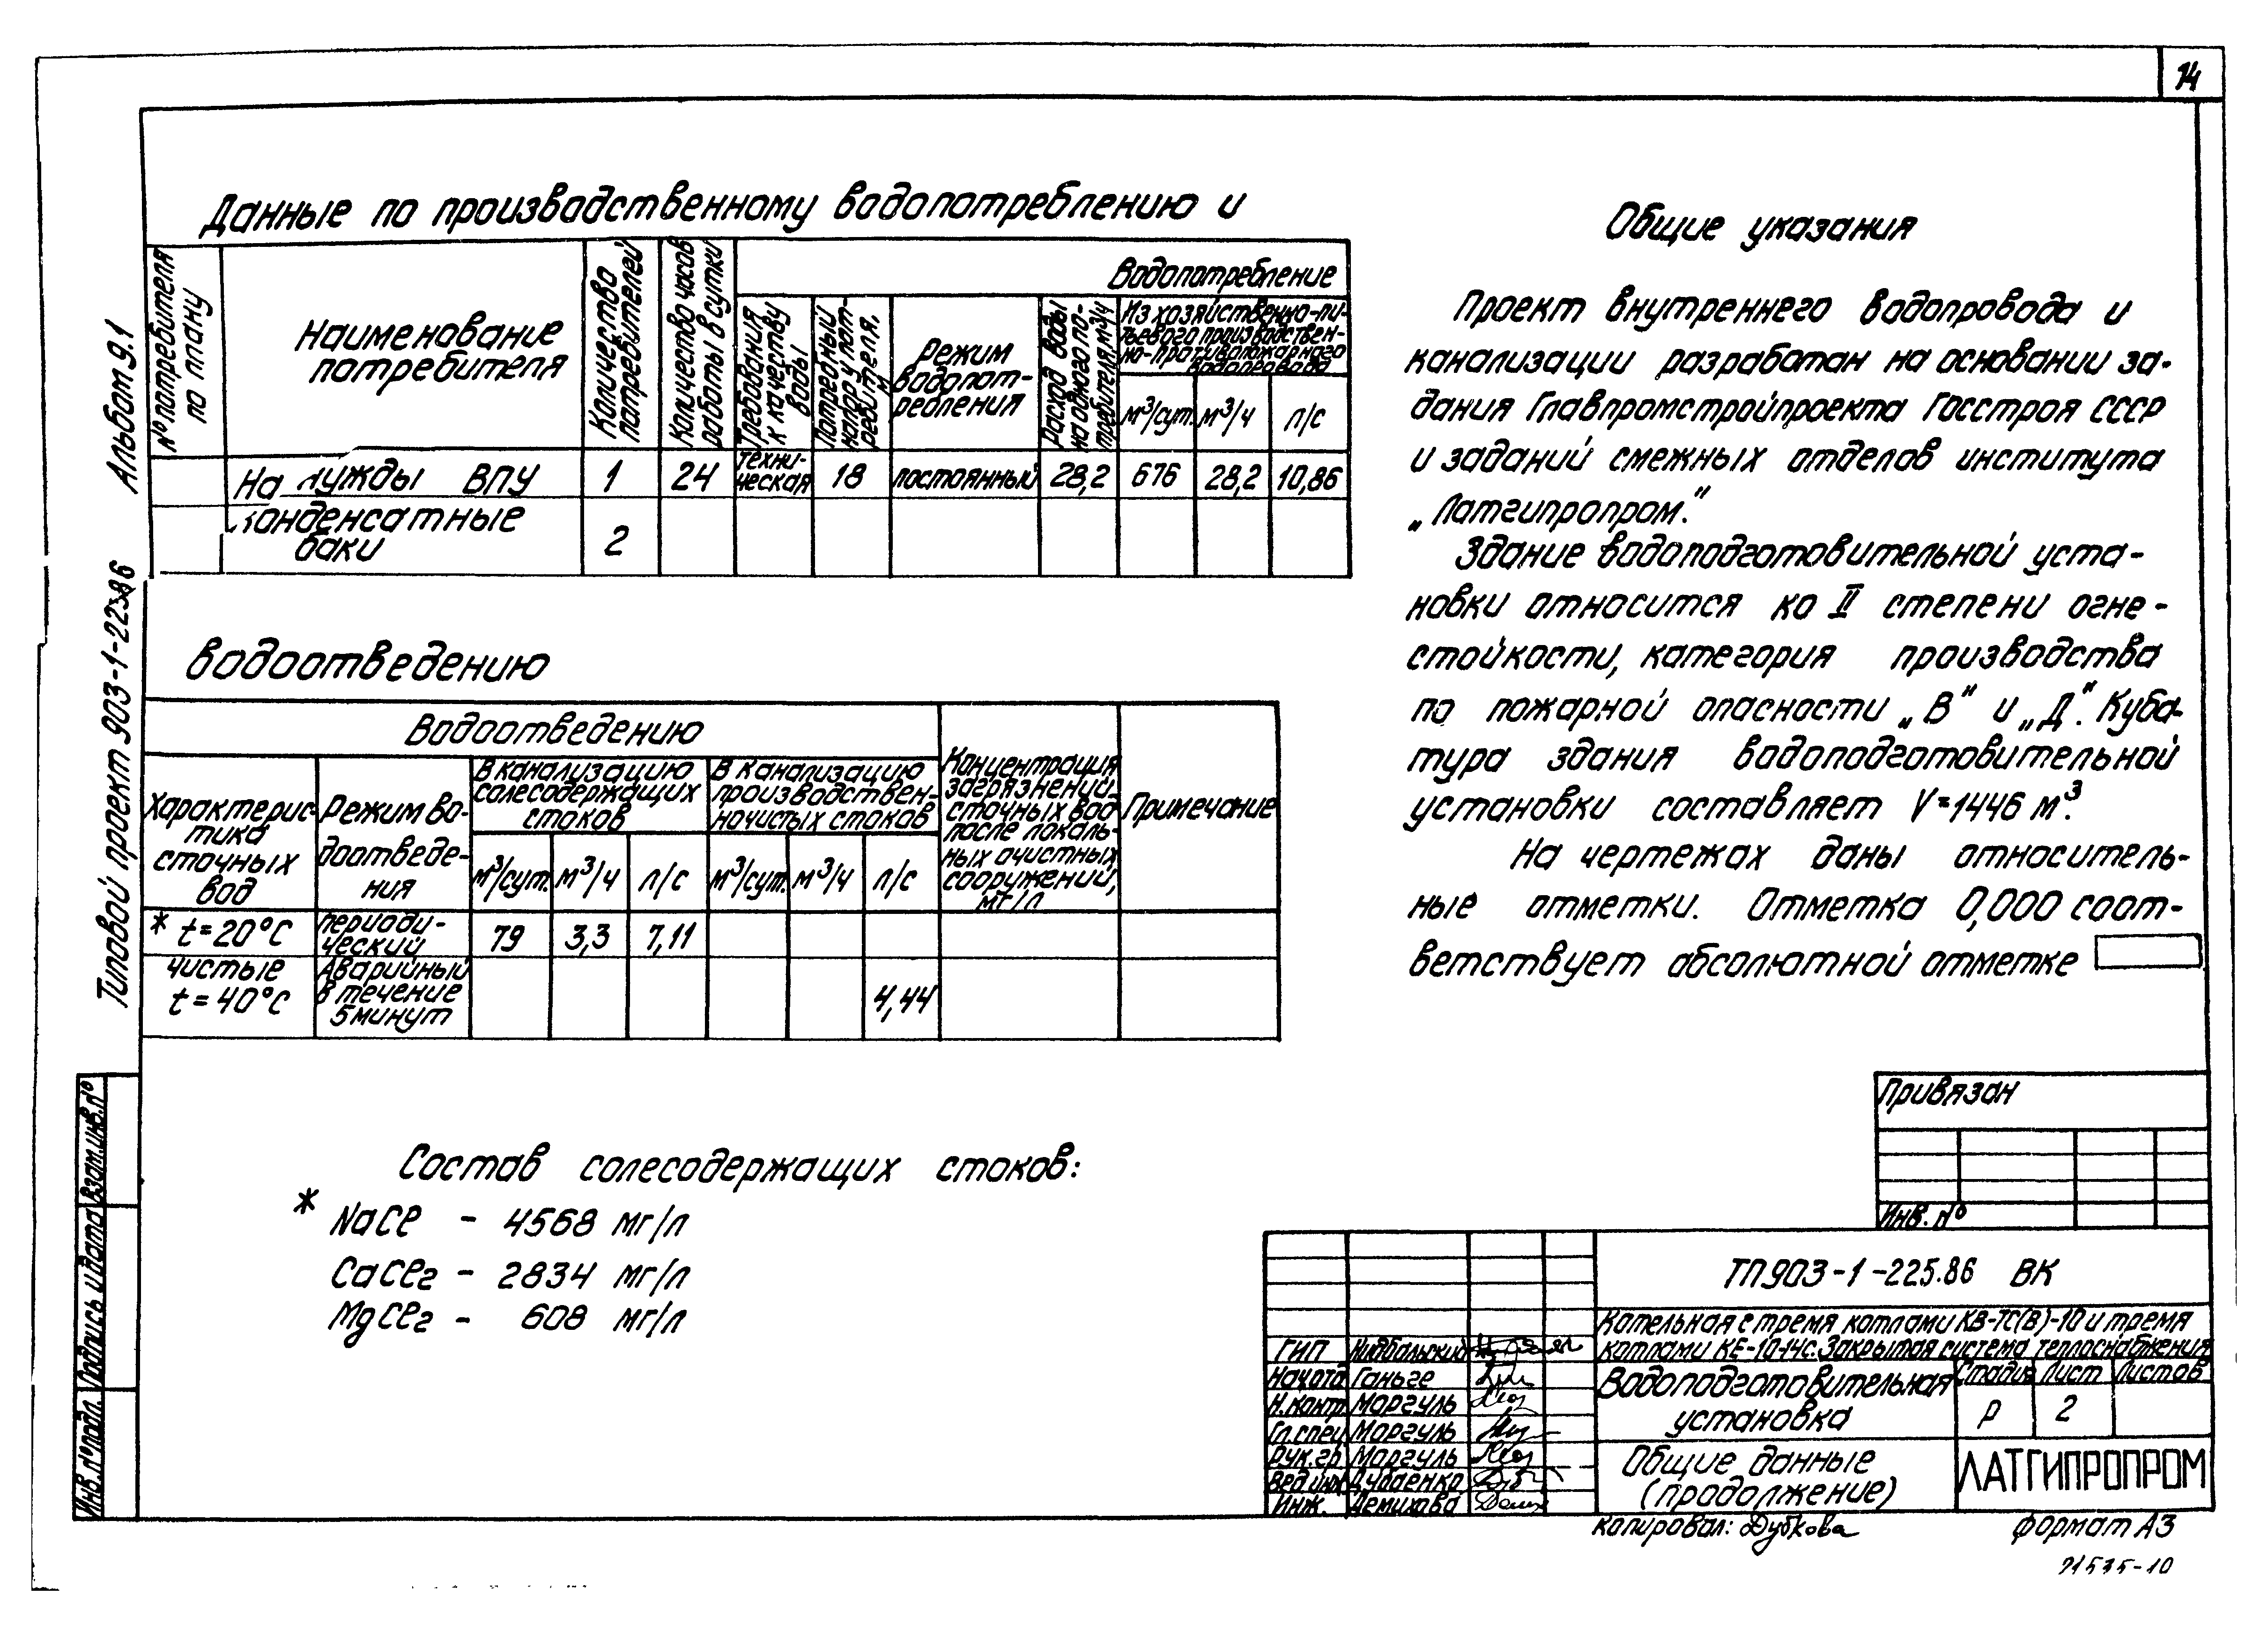 14
Альбом 9.1
Типовой проект 903-1-225.86
Данные по производственному водопотреблению и
№ потребителя по плану
Наименование потребителя
Количество потребителей
Количество часов работы в сутки
Водопотребление
Требования к качеству воды
Потребный напор у пот-
ребителя, м
Режим
водопот-
ребления
Расход воды
на одного по-
требителя, м³/ч
Из хозяйственно-пи-
тьевого производствен-
но-противопожарного
водопровода
м³/сут. м³/ч л/с
На нужды ВПУ 1 24 техни-
ческая 18 постоянный 28,2 676 28,2 10,86
Конденсатные
баки 2
водоотведению
Водоотведению
Характерис-
тика
сточных
вод
Режим во-
доотведе-
ния
В канализацию
солесодержащих
стоков
В канализацию
производствен-
ночистых стоков
Концентрация
загрязнений
сточных вод
после локаль-
ных очистных
сооружений,
мг/л
Примечание
м³/сут. м³/ч л/с м³/сут. м³/ч л/с
* t=20°C периоди-
ческий 79 3,3 7,11
чистые
t=40°C
Аварийный
в течение
5 минут
4,44
Состав солесодержащих стоков:
* NaCl - 4568 мг/л
CaCl2 - 2834 мг/л
MgCl2 - 608 мг/л
Общие указания
Проект внутреннего водопровода и
канализации разработан на основании за-
дания Главпромстройпроекта Госстроя СССР
и заданий смежных отделов института
„Латгипропром."
Здание водоподготовительной уста-
новки относится ко II степени огне-
стойкости, категория производства
по пожарной опасности „В" и „Д". Куба-
тура здания водоподготовительной
установки составляет V=1446 м³.
На чертежах даны относитель-
ные отметки. Отметка 0,000 соот-
ветствует абсолютной отметке
Привязан
Инв. №
ТП 903-1-225.86 ВК
Котельная с тремя котлами КВ-ТС(В)-10 и тремя
котлами КЕ-10-14с. Закрытая система теплоснабжения
ГИП Нидбальский
Нач.отд Ганьге
Н.контр. Моргуль
Гл.спец Моргуль
Рук.гр. Моргуль
Вед.инж Дубаенко
Инж. Демихова
Водоподготовительная
установка
Стадия Лист Листов
Р 2
Общие данные
(продолжение)
ЛАТГИПРОПРОМ
Копировал: Дубкова
Формат А3
21535-10
Взам.инв.№
Подпись и дата
Инв.№ подл.